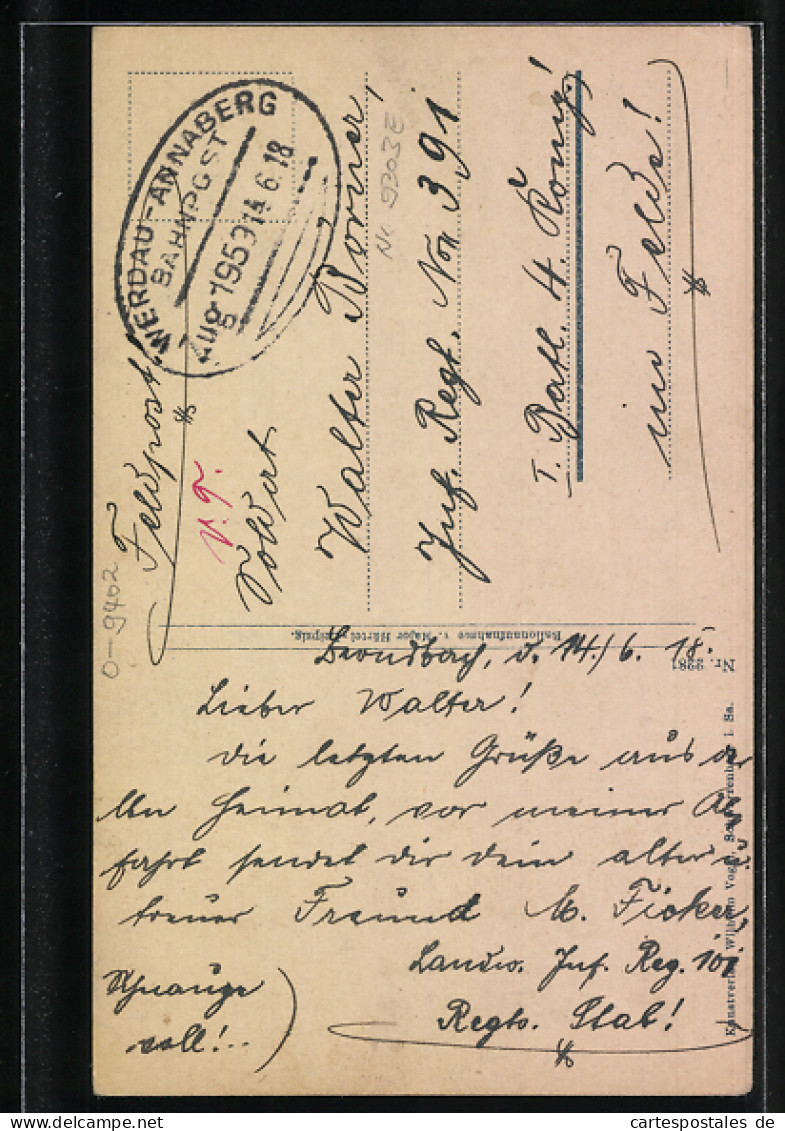 WERDAU-ANNABERG
BAHNPOST
Zug 1953 14 6.18
Feldpost!
v. g.
Soldat
Walter Borner,
Inf. Regt. Non 391
I. Batl. 4. König!
im Felde!
Nr. 9303E
O-9402
Ballonaufnahme v. Major Härtel, Leipzig.
Nr. 2281
d. 14./6. 18.
Lieber Walter!
Die letzten Grüße aus der
alten Heimat, vor meiner Ab
fahrt sendet dir dein alter u.
treuer Freund M. Ficker,
Landw. Inf. Reg. 101
Regts. Stab!
Schnauze
voll!..
Kunstverlag Wilhelm Vogel, Schwarzenberg i. Sa.
cartespostales de